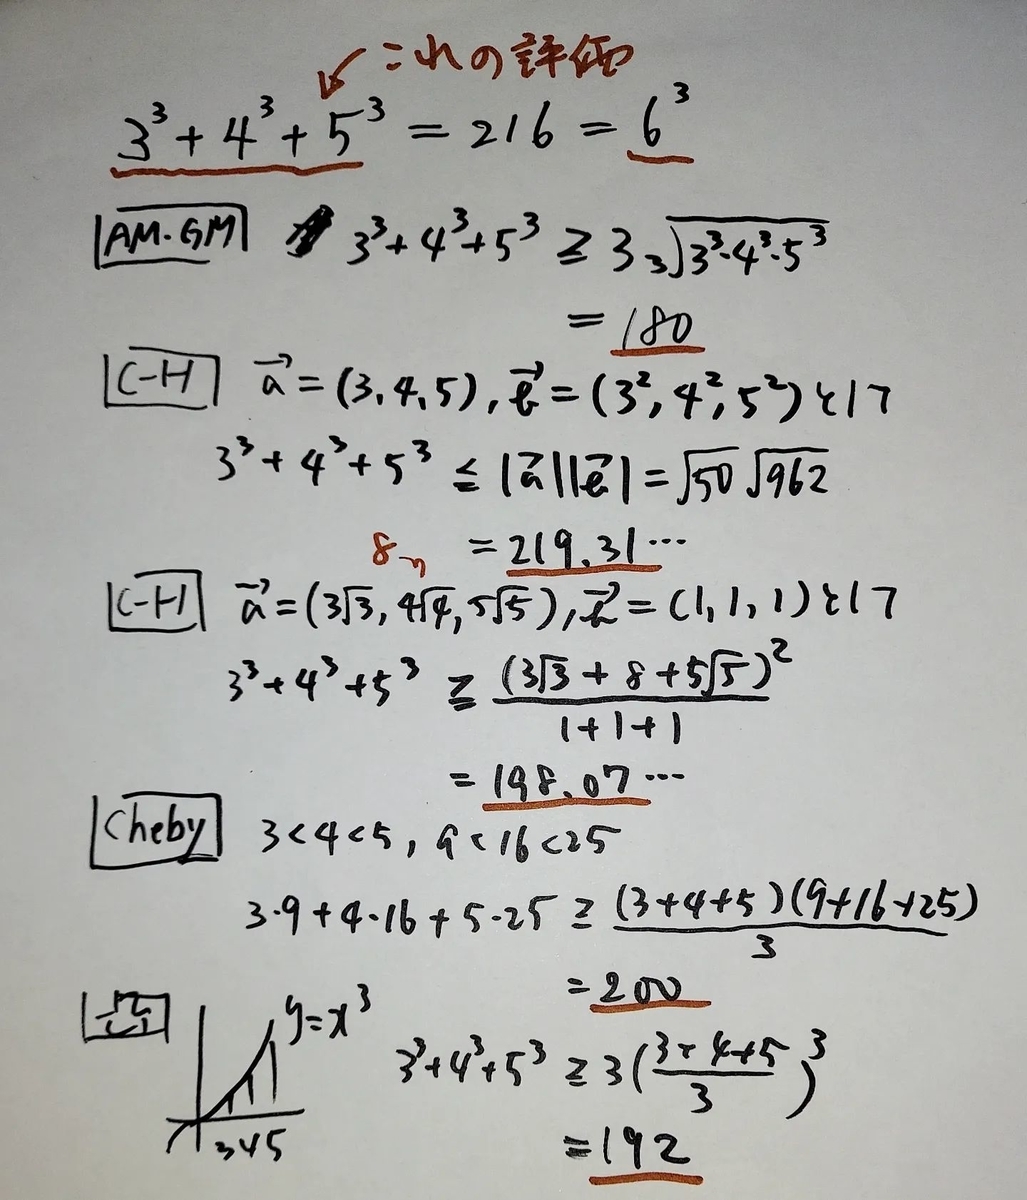 これの評価
3³+4³+5³ = 216 = 6³
AM-GM 3³+4³+5³ ≧ 3 ³√3³・4³・5³
= 180
C-H a→ = (3, 4, 5), b→ = (3², 4², 5²) として
3³+4³+5³ ≦ |a→||b→| = √50 √962
= 219.31…
8
C-H a→ = (3√3, 4√4, 5√5), b→ = (1, 1, 1) として
3³+4³+5³ ≧ (3√3 + 8 + 5√5)² / 1+1+1
= 198.07…
Cheby 3<4<5, 9<16<25
3・9+4・16+5・25 ≧ (3+4+5)(9+16+25) / 3
= 200
凸 y=x³
3³+4³+5³ ≧ 3(3+4+5 / 3)³
3 4 5
= 192